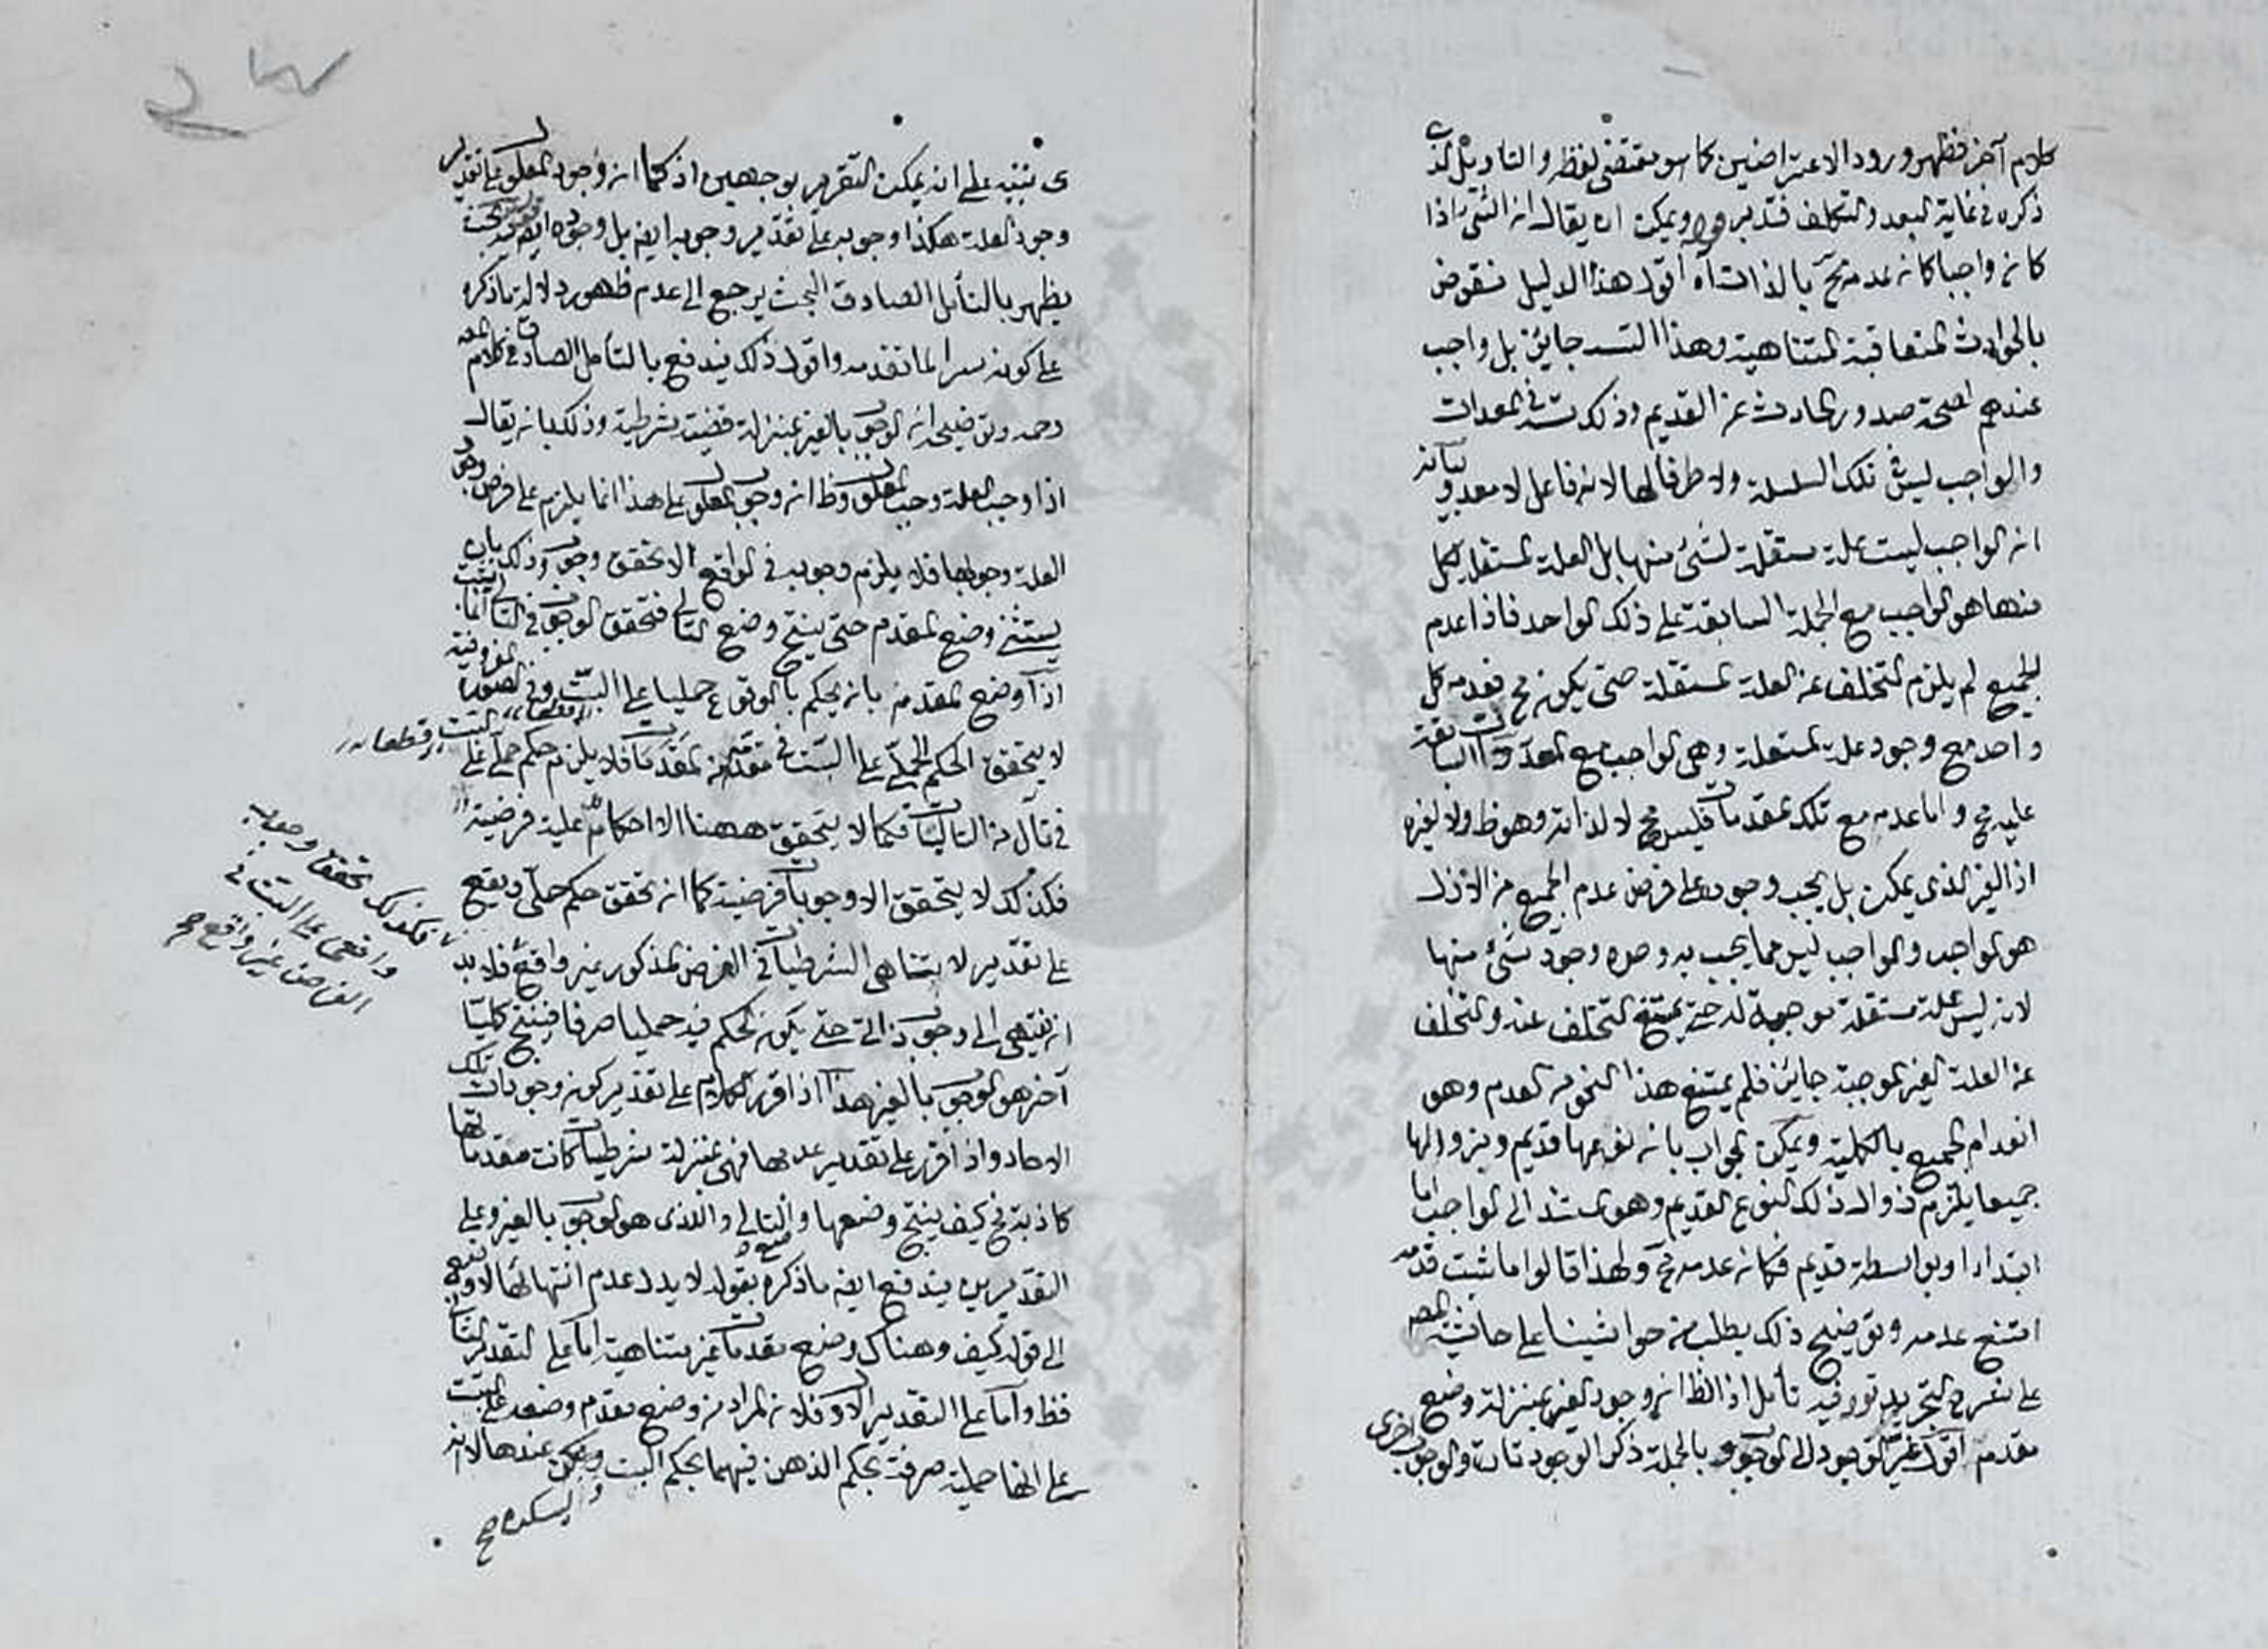 كلام آخر فظهر ورود الاعتراضين كما هو مقتضى لفظه والتاويل الذي
ذكره في غاية البعد والتكلف فتدبر ويمكن ان يقال ان الشئ اذا
كان واجبا كان عدمه مح بالذات آه اقول هذا الدليل منقوض
بالحوادث المتعاقبة المتناهية وهذا التسه جايز بل واجب
عندهم لصحة صدور الحادث عن القديم وذلك في المعدات
والواجب ليس تلك السلسلة ولا طرفا لها لانه فاعل لا معد وبيانه
ان الواجب ليست علة مستقلة لشئ منها بل العلة المستقلة لكل
منها هو الواجب مع الجملة السابقة على ذلك الواحد فاذا عدم
الجميع لم يلزم التخلف عن العلة المستقلة حتى يكون مح فعدم كل
واحد مع وجود علة المستقلة وهي الواجب مع المعدات السابقة
عليه مح واما عدمه مع تلك المقدمات فليس مح لا لذاته وهو ظ ولا لغيره
اذ الغير الذي يمكن بل يجب وجوده على فرض عدم الجميع من الازل
هو الواجب والواجب ليس مما يجب به وحده وجود شئ منها
لانه ليس علة مستقلة موجبة له حتى يمتنع التخلف عنه والتخلف
عن العلة الغير الموجبة جايز فلم يمتنع هذا النحو من العدم وهو
انعدام الجميع بالكلية ويمكن الجواب بان نوعها قديم وبزوالها
جميعا يلزم زوال ذلك النوع القديم وهو مستند الى الواجب اما
ابتداء او بواسطة قديم فكان عدمه مح ولهذا قالوا ما ثبت قدمه
امتنع عدمه وتوضيح ذلك يطلب من حواشينا على حاشية المحقق
على شرح التجريد قوله فيه تأمل اذ الظ ان وجود الغير بمنزلة وضع
مقدم اقول غير الوجود الى الوجوب وبالجملة ذكر الوجود تارة والوجوب اخرى
ى ينبه على انه يمكن التقرير بوجهين اذ كما ان وجود المعلول على تقدير
وجود العلة هكذا وجوبه على تقدير وجوبه ايضا بل وجوده ايضا
يظهر بالتأمل الصادق البحث يرجع الى عدم ظهور دلالة ما ذكره
على كونه سرا لما تقدمه واقول ذلك يندفع بالتأمل الصادق في كلام
رحمه وتوضيحه ان الوجوب بالغير بمنزلة قضية شرطية وذلك بان يقال
اذا وجب العلة وجب المعلول وظ ان وجوب المعلول على هذا انما يلزم على فرض وجود
العلة وجوبها فلا يلزم وجوبه في الواقع الا بتحقق وجوب وذلك بان
يستثنى وضع المقدم حتى ينتج وضع التالي فتحقق الوجوب في التالي انما يثبت
اذا وضع المقدم بان يحكم بالوقوع حمليا على البت وفي الصورة المفروضة
لا يتحقق الحكم الحملي على البت في مقدم من المقدمات فلا يلزم حكم حملي على البت
في تال من التاليات فكما لا يتحقق ههنا الا احكام حملية فرضية
فكذلك لا يتحقق الا وجوبات فرضية كما ان تحقق حكم حملي ويقع
على تقدير لا تناهي الشرطيات في الفرض المذكور غير واقع فلا بد
ان ينتهي الى وجوب ذاتي حتى يكون الحكم فيه حمليا صرفا فينتج كليا
آخر هو الوجوب بالغير هذا اذا قرر الكلام على تقدير كون وجوبات تلك
الاحاد واذا قرر على تقدير عدمها فهي بمنزلة شرطيات كانت مقدماتها
كاذبة مح كيف ينتج وضعها والتالي والذي هو الوجوب بالغير وعلى
التقديرين يندفع ايضا ما ذكره بقوله لا يدل عدم انتهائها
الى قوله كيف وهناك وضع مقدمات غير متناهية اما على التقدير الثاني
فظ واما على التقدير الاول فلان المراد من وضع مقدم وضعه على البت
على انها حملية صرفة يحكم الذهن فيهما بحكم البت ويمكن عندها لانه
وليس كذلك صح
فكذلك تحقق وجوب
واقعي على البت في
الفرض غير واقع صح